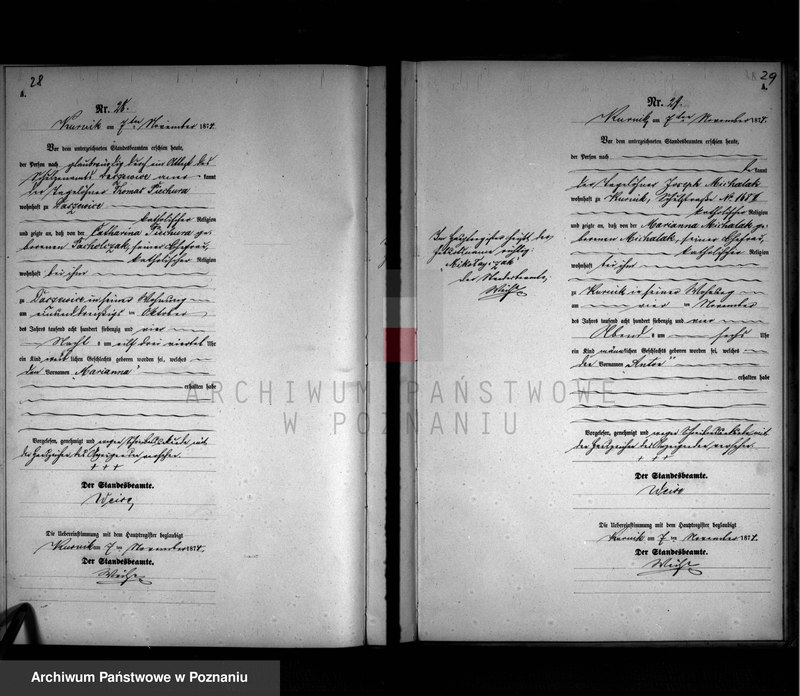 28
A.
Nr. 28.
Kurnik am 7ten November 1874.
Vor dem unterzeichneten Standesbeamten erschien heute,
der Person nach
kannt
der Tagelöhner Thomas Piechura
wohnhaft zu Daszewice
katholischer Religion
und zeigte an, daß von der Catharina Piechura ge-
borenen Pacholczak, seiner Ehefrau,
katholischer Religion
wohnhaft bei ihm
zu Daszewice in seiner Wohnung
am einunddreißigsten Oktober
des Jahres tausend acht hundert siebenzig und vier
Nachts um elf drei viertel Uhr
ein Kind weiblichen Geschlechts geboren worden sei, welches
den Vornamen „Marianna“
erhalten habe
Vorgelesen, genehmigt und wegen Schreibunkunde mit
den Handzeichen des Anzeigenden versehen.
+ + +
Der Standesbeamte.
Weise
Die Uebereinstimmung mit dem Hauptregister beglaubigt
Kurnik am 7ten November 1874.
Der Standesbeamte.
Weise
29
A.
Nr. 29.
Kurnik am 7ten November 1874.
Vor dem unterzeichneten Standesbeamten erschien heute,
der Person nach
bekannt
der Tagelöhner Joseph Michalak
wohnhaft zu Kurnik,
katholischer Religion
und zeigte an, daß von der Marianna Michalak ge-
borenen Michalak, seiner Ehefrau,
katholischer Religion
wohnhaft bei ihm
zu Kurnik in seiner Wohnung
am vier ten November
des Jahres tausend acht hundert siebenzig und vier
Abends um sechs Uhr
ein Kind männlichen Geschlechts geboren worden sei, welches
den Vornamen „Anton“
erhalten habe
Vorgelesen, genehmigt und wegen Schreibunkunde mit
den Handzeichen des Anzeigenden versehen.
+ + +
Der Standesbeamte.
Weise
Die Uebereinstimmung mit dem Hauptregister beglaubigt
Kurnik am 7ten November 1874.
Der Standesbeamte.
Weise
Im Hauptregister heißt der
richtig
Der Standesbeamte
Weise
ARCHIWUM PAŃSTWOWE
W POZNANIU
Archiwum Państwowe w Poznaniu